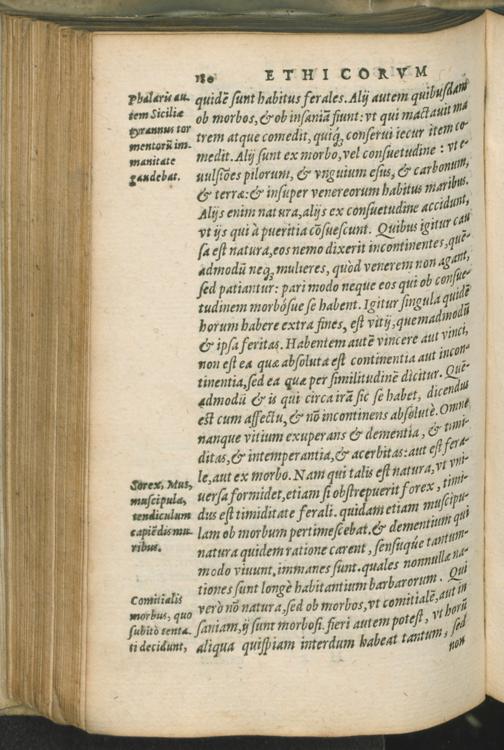 180 ETHICORVM
Phalaris au-
tem Siciliæ
tyrannus tor
mentorũ im-
manitate
gaudebat.
quidẽ sunt habitus ferales. Alij autem quibusdam
ob morbos, & ob insaniã fiunt: vt qui mactauit ma
trem atque comedit, quiq; conserui iecur item co-
medit. Alij sunt ex morbo, vel consuetudine : vt e-
uulsiões pilorum, & vnguium esus, & carbonum,
& terræ: & insuper venereorum habitus maribus.
Alijs enim natura, alijs ex consuetudine accidunt,
vt ijs qui à pueritia cõsuescunt. Quibus igitur cau
sa est natura, eos nemo dixerit incontinentes, quẽ-
admodũ neq; mulieres, quòd venerem non agant,
sed patiantur: pari modo neque eos qui ob consue-
tudinem morbósue se habent. Igitur singula quidẽ
horum habere extra fines, est vitij, quemadmodũ
& ipsa feritas. Habentem autẽ vincere aut vinci,
non est ea quæ absoluta est continentia aut incon-
tinentia, sed ea quæ per similitudinẽ dicitur. Quẽ-
admodũ & is qui circa irã sic se habet, dicendus
est cum affectu, & nõ incontinens absolutè. Omne
nanque vitium exuperans & dementia, & timi-
ditas, & intemperantia, & acerbitas: aut est fera-
le, aut ex morbo. Nam qui talis est natura, vt vni-
uersa formidet, etiam si obstrepuerit sorex, timi-
dus est timiditate ferali. quidam etiam muscipu-
lam ob morbum pertimescebat. & dementium qui
natura quidem ratione carent, sensuque tantum-
modo viuunt, immanes sunt. quales nonnullæ na-
tiones sunt longè habitantium barbarorum. Qui
verò nõ natura, sed ob morbos, vt comitialẽ, aut in
saniam, ij sunt morbosi. fieri autem potest, vt horũ
aliqua quispiam interdum habeat tantum, sed
non
Sorex, Mus,
muscipula,
tendiculum
capiẽdis mu-
ribus.
Comitialis
morbus, quo
subitò tenta-
ti decidunt,